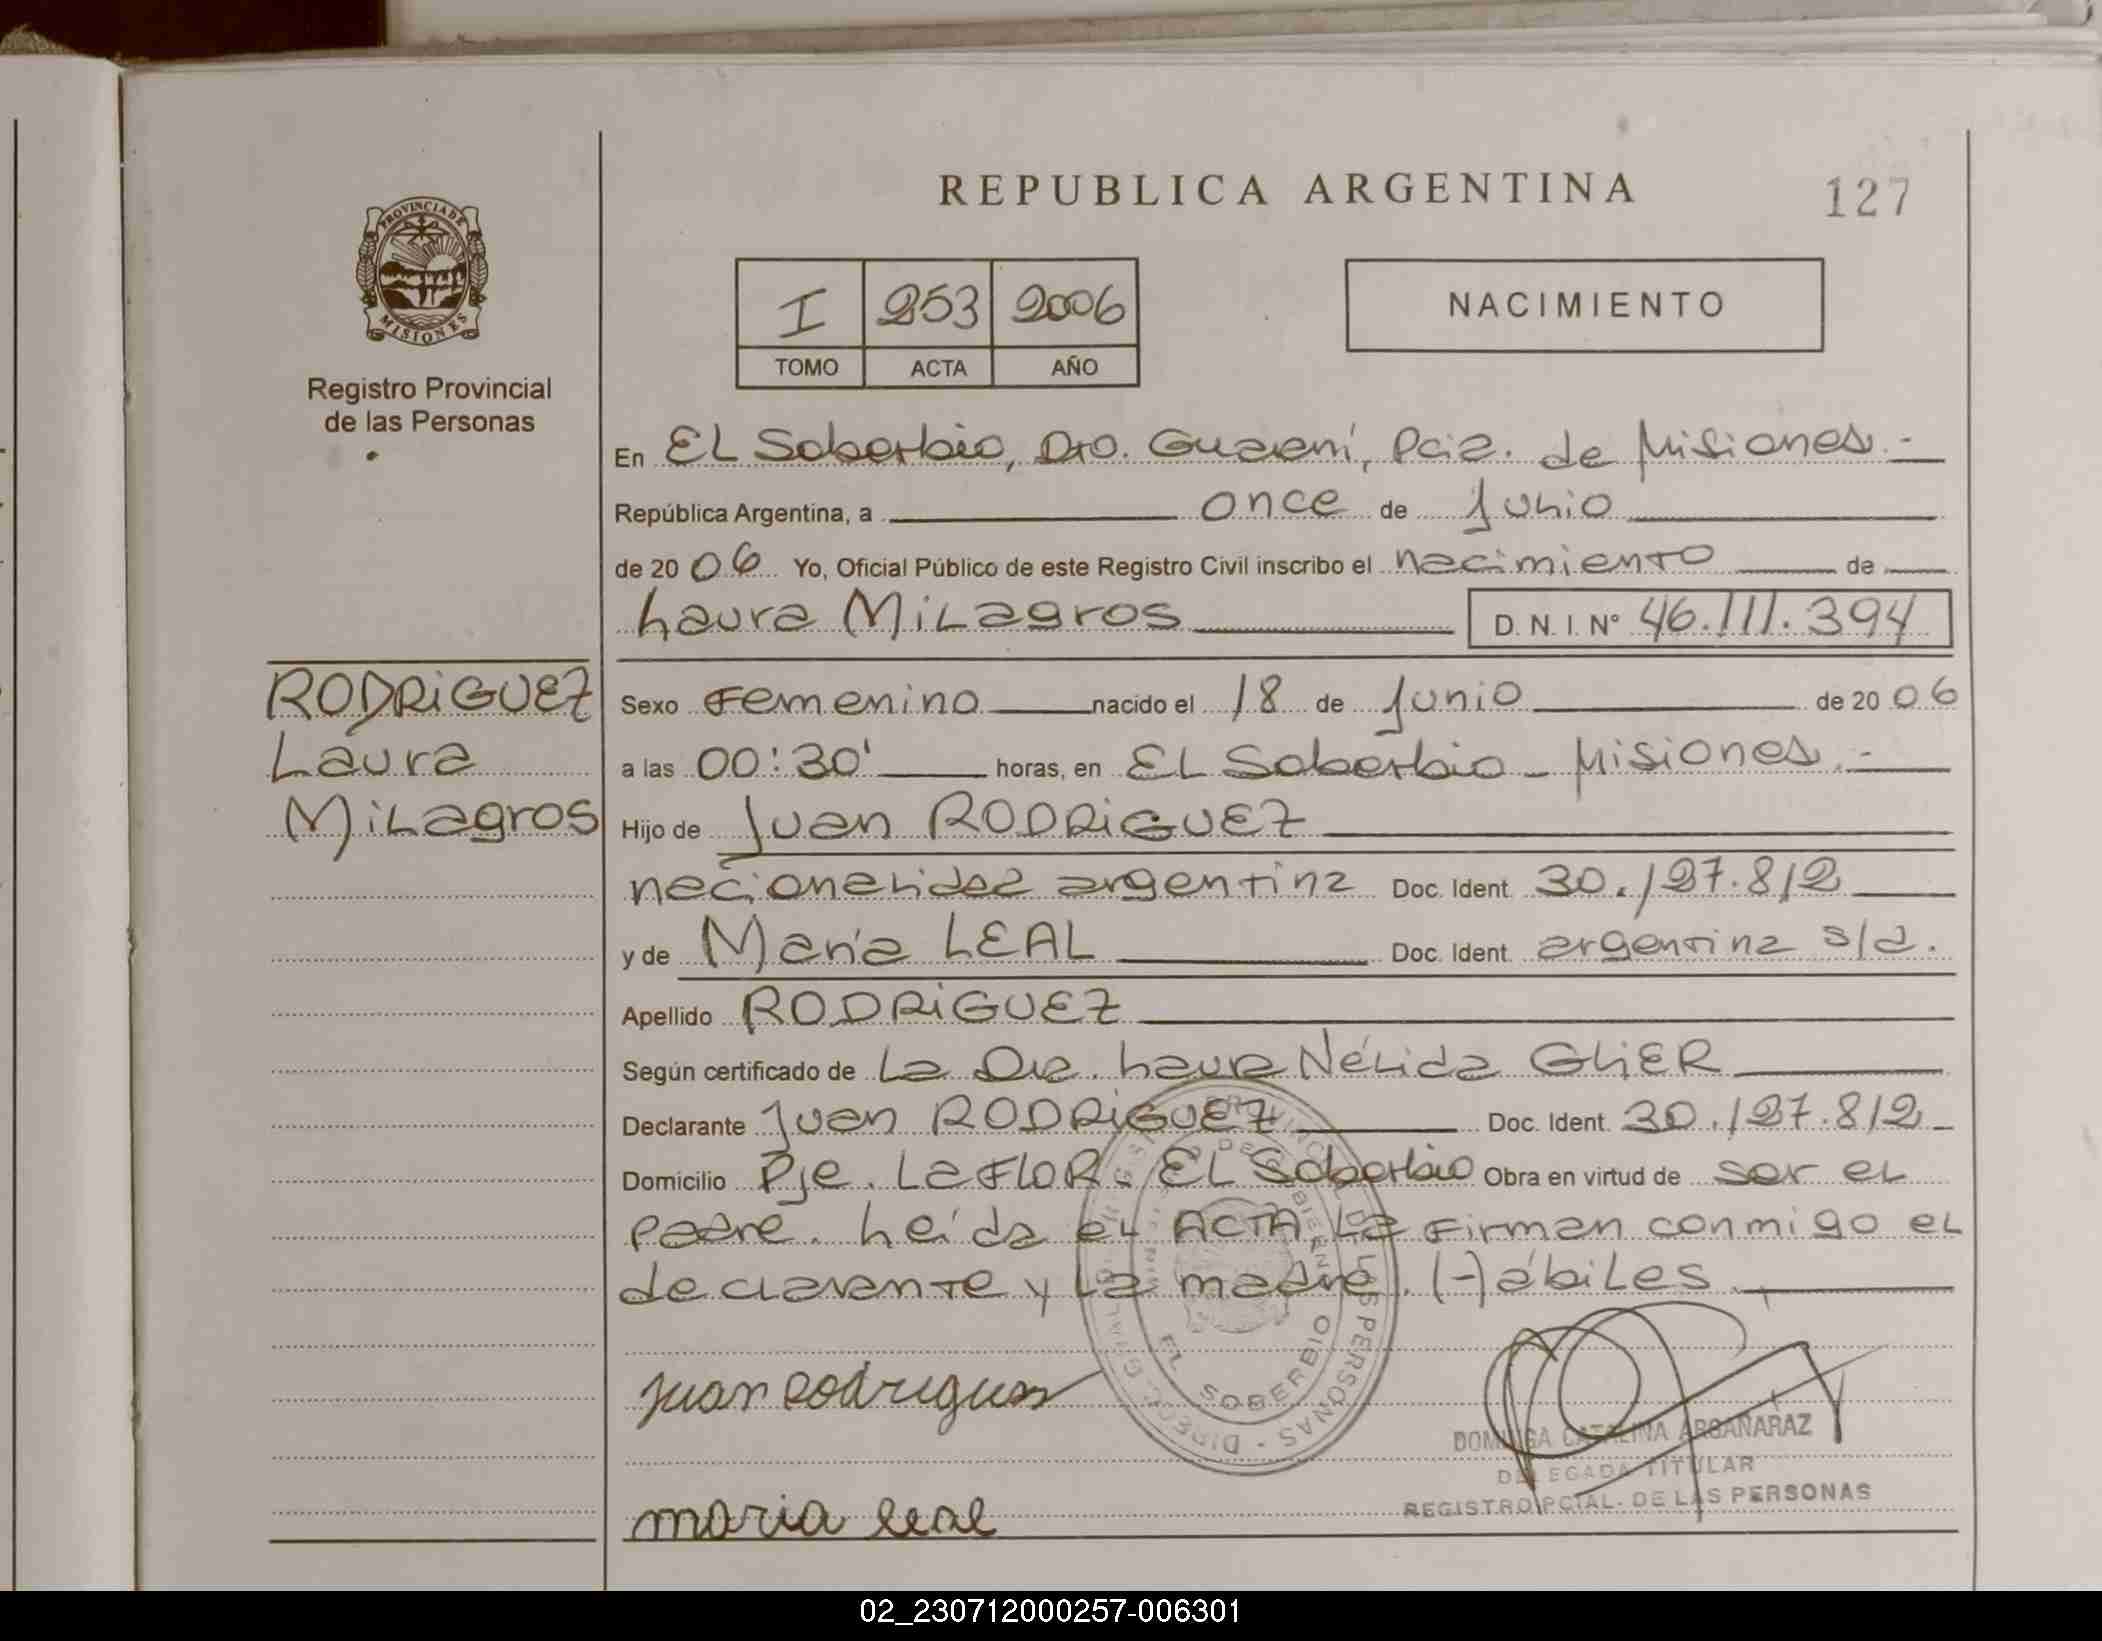 REPUBLICA ARGENTINA
127
PROVINCIA DE
MISIONES
Registro Provincial
de las Personas
I 253 2006
TOMO ACTA AÑO
NACIMIENTO
En EL Soberbio, Dto. Guaraní, Pcia. de Misiones.-
República Argentina, a once de Junio
de 2006 Yo, Oficial Público de este Registro Civil inscribo el nacimiento de
Laura MiLagros D. N. I. Nº 46.111.394
RODRiGUEZ
Laura
MiLagros
Sexo Femenino nacido el 18 de Junio de 2006
a las 00:30' horas, en EL Soberbio - Misiones.-
Hijo de Juan RODRiGUEZ
nacionalidad argentina Doc. Ident. 30.127.812
y de María LEAL Doc. Ident. argentina s/d.
Apellido RODRiGUEZ
Según certificado de La Dra. Laura NéLida GLiER
Declarante Juan RODRiGUEZ Doc. Ident. 30.127.812
Domicilio Pje. La FLOR. EL Soberbio Obra en virtud de ser eL
padre. Leída eL ACTA, La Firman conmigo eL
declarante y La madre. HábiLes
juan Rodriguez
maria leal
EL SOBERBIO
DOMINGA CATALINA ARGAÑARAZ
DELEGADA TITULAR
REGISTRO PCIAL. DE LAS PERSONAS
02_230712000257-006301